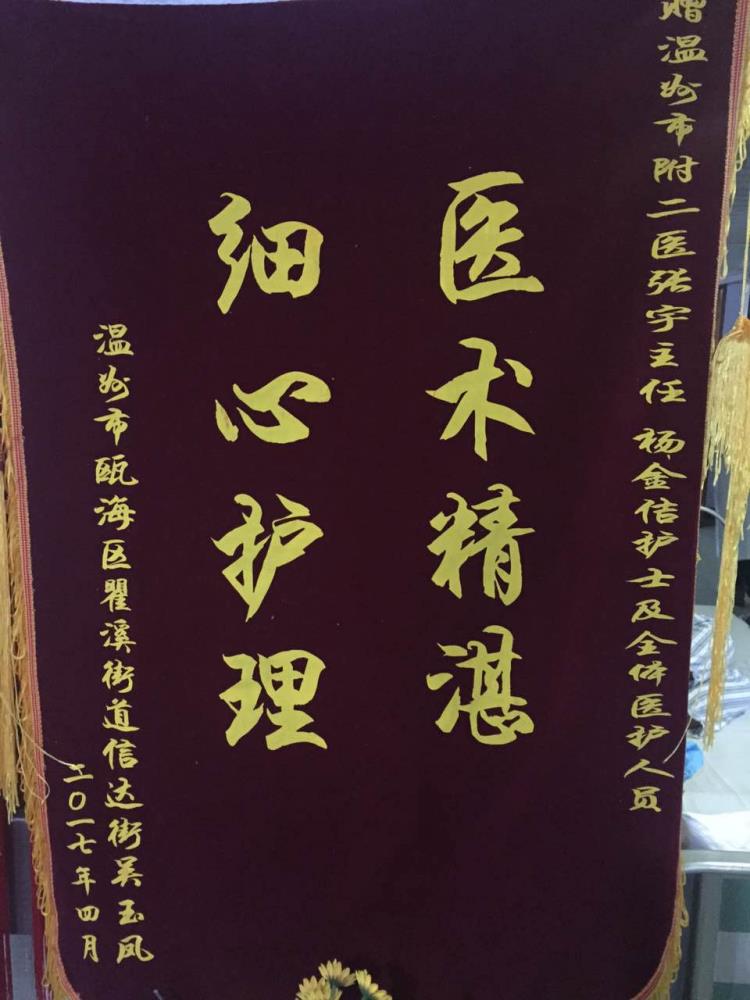 赠温州市附二医张宇主任 杨金佶护士及全体医护人员
医术精湛
细心护理
温州市瓯海区瞿溪街道信达街吴玉凤
二〇一七年四月